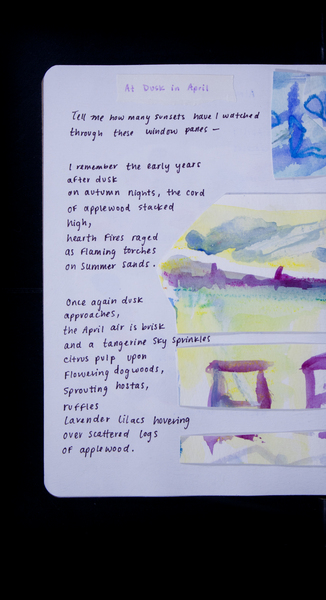 At Dusk in April
Tell me how many sunsets have I watched
through these window panes —
I remember the early years
after dusk
on autumn nights, the cord
of applewood stacked
high,
hearth fires raged
as flaming torches
on summer sands.
Once again dusk
approaches,
the April air is brisk
and a tangerine sky sprinkles
citrus pulp upon
flowering dogwoods,
sprouting hostas,
ruffles
lavender lilacs hovering
over scattered logs
of applewood.